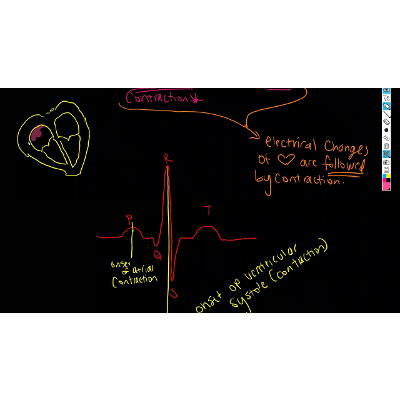 Contraction*
electrical Changes
of ♡ are followed
by contraction.
R
P
T
Q
onset
of atrial
Contraction
onset of ventricular
systole (contraction)